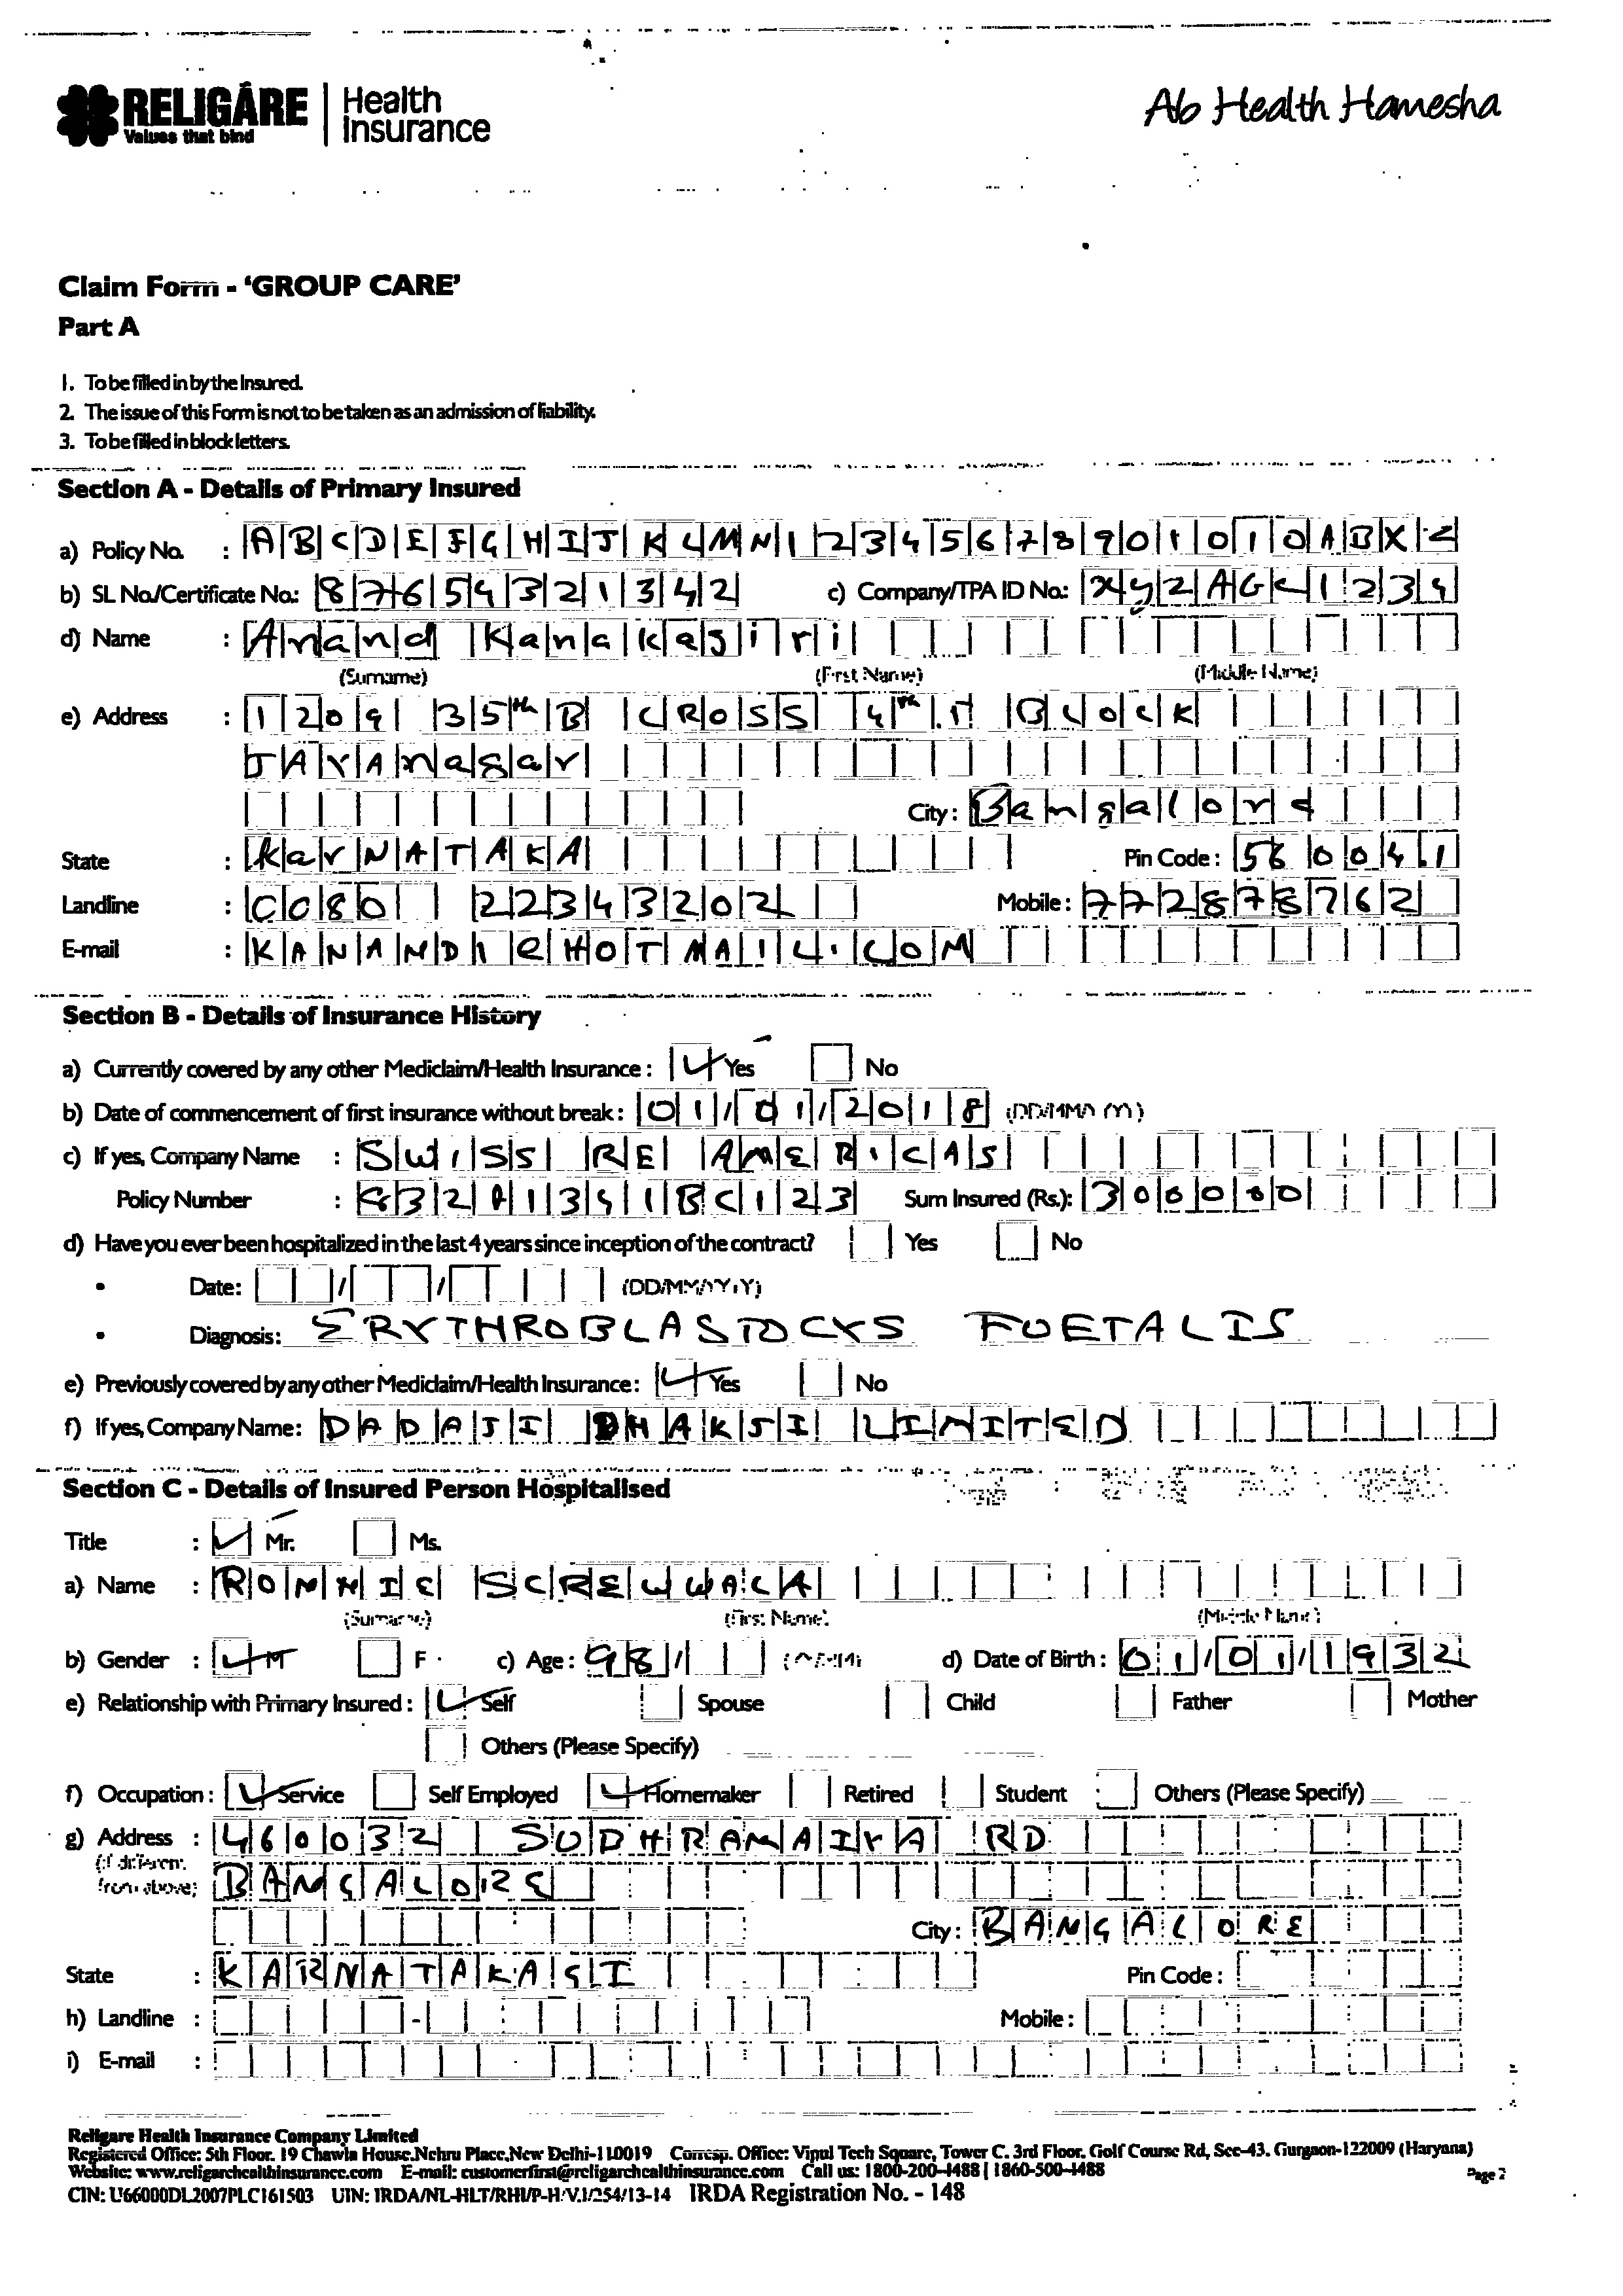 RELIGARE Health Insurance
Values that bind
Ab Health Hamesha
Claim Form - 'GROUP CARE'
Part A
1. To be filled in by the Insured.
2. The issue of this Form is not to be taken as an admission of liability.
3. To be filled in block letters.
Section A - Details of Primary Insured
a) Policy No. : ABCDEFGHIJKLMN12345678901010ABX
b) SL No./Certificate No.: 87654321342 c) Company/TPA ID No.: XYZAGK1234
d) Name : Anand Kanakagiri
(Surname) (First Name) (Middle Name)
e) Address : 1209 35th B CROSS 4th T BLOCK
JAYAnagar
City : Bangalore
State : KarNATAKA Pin Code : 560041
Landline : 0080 22343202 Mobile : 772878762
E-mail : KANAND1@HOTMAIL.COM
Section B - Details of Insurance History
a) Currently covered by any other Mediclaim/Health Insurance : Yes No
b) Date of commencement of first insurance without break : 01/01/2018 (DD/MM/YY)
c) If yes, Company Name : SWISS RE AMERICAS
Policy Number : 832A1341BC123 Sum Insured (Rs.): 300000
d) Have you ever been hospitalized in the last 4 years since inception of the contract? Yes No
• Date: / / (DD/MM/YYYY)
• Diagnosis: ERYTHROBLASTOCYS FOETALIS
e) Previously covered by any other Mediclaim/Health Insurance : Yes No
f) If yes, Company Name: DADAJI DHAKJI LIMITED
Section C - Details of Insured Person Hospitalised
Title : Mr. Ms.
a) Name : RONNIE SCREWWALA
(Surname) (First Name) (Middle Name)
b) Gender : M F c) Age : 98/ d) Date of Birth : 01/01/1932
e) Relationship with Primary Insured : Self Spouse Child Father Mother
Others (Please Specify)
f) Occupation : Service Self Employed Homemaker Retired Student Others (Please Specify)
g) Address : 460032 SUDHRAMAIYA RD
(if different from above) BANGALORE
City : BANGALORE
State : KARNATAKAGI Pin Code :
h) Landline : - Mobile :
i) E-mail :
Religare Health Insurance Company Limited
Registered Office: 5th Floor, 19 Chawla House, Nehru Place, New Delhi-110019 Corresp. Office: Vipul Tech Square, Tower C, 3rd Floor, Golf Course Rd, Sec-43, Gurgaon-122009 (Haryana)
Website: www.religarehealthinsurance.com E-mail: customerfirst@religarehealthinsurance.com Call us: 1800-200-4488 | 1860-500-4488
Page 2
CIN: U66000DL2007PLC161503 UIN: IRDA/NL-HLT/RHI/P-H/V.I/254/13-14 IRDA Registration No. - 148